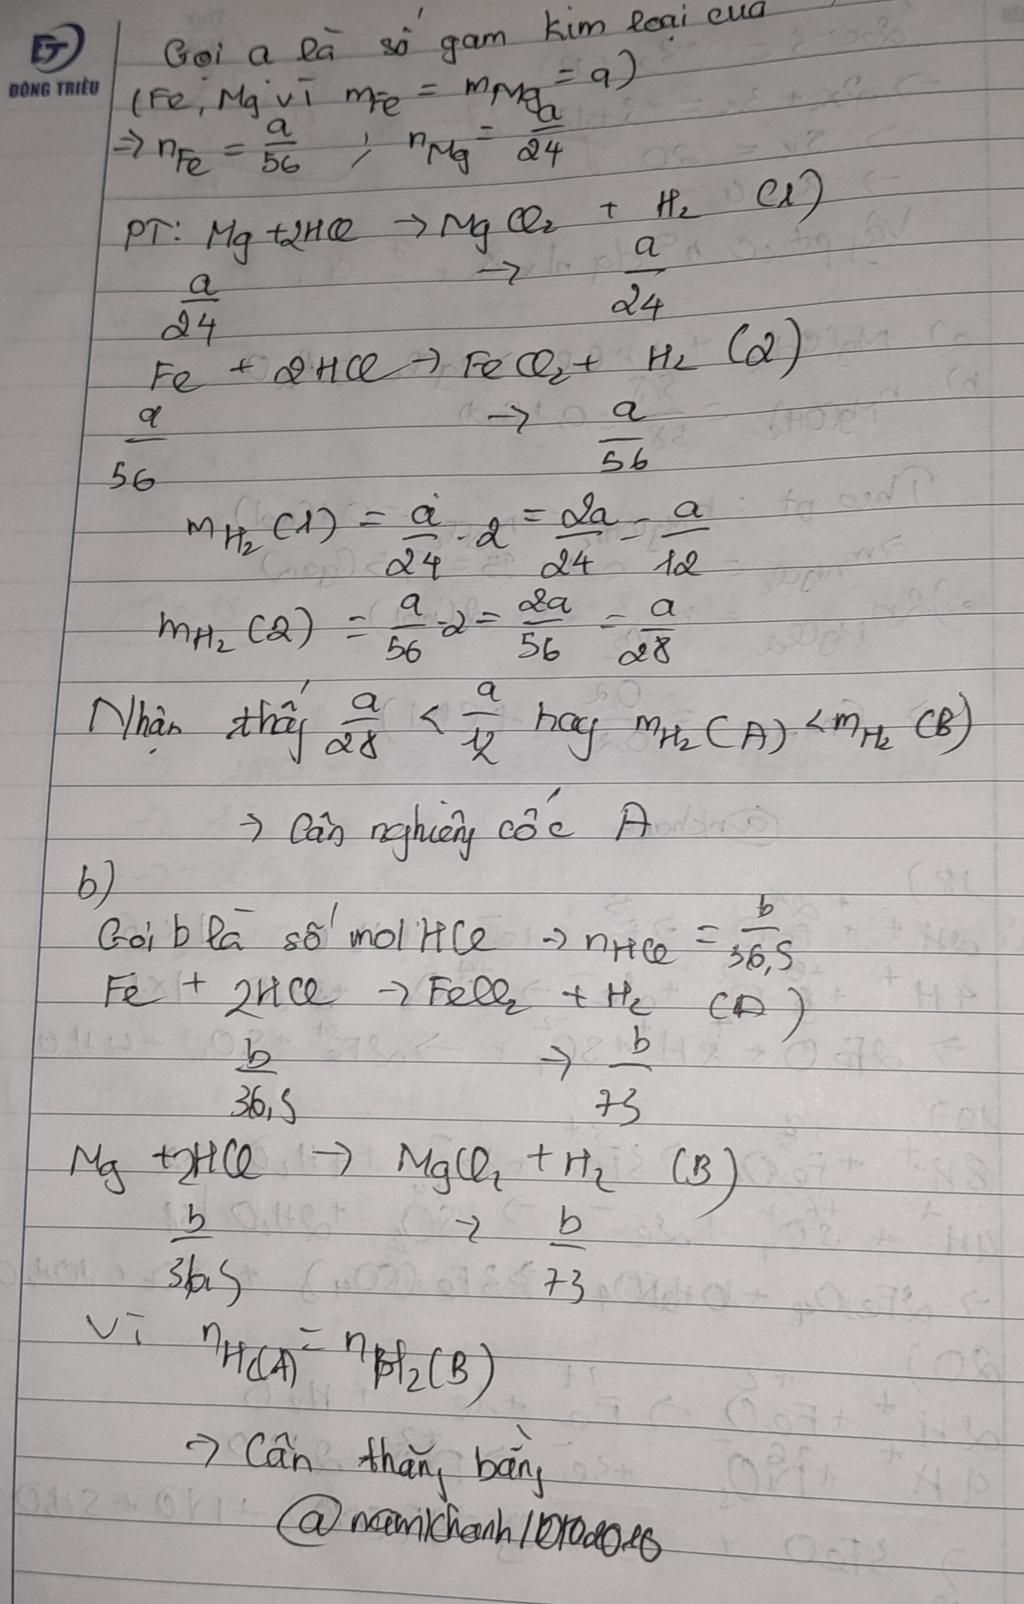 ĐT
ĐÔNG TRIỀU
Gọi a là số gam kim loại của
(Fe, Mg vì mFe = mMg = a)
=> nFe = a/56 ; nMg = a/24
PT: Mg + 2HCl → MgCl2 + H2 (1)
a/24 → a/24
Fe + 2HCl → FeCl2 + H2 (2)
a/56 → a/56
mH2 (1) = a/24 . 2 = 2a/24 = a/12
mH2 (2) = a/56 . 2 = 2a/56 = a/28
Nhận thấy a/28 < a/12 hay mH2 (A) < mH2 (B)
→ Cân nghiêng cốc A
b)
Gọi b là số mol HCl → nHCl = b/36,5
Fe + 2HCl → FeCl2 + H2 (A)
b/36,5 → b/73
Mg + 2HCl → MgCl2 + H2 (B)
b/36,5 → b/73
Vì nH2(A) = nH2(B)
→ Cân thăng bằng